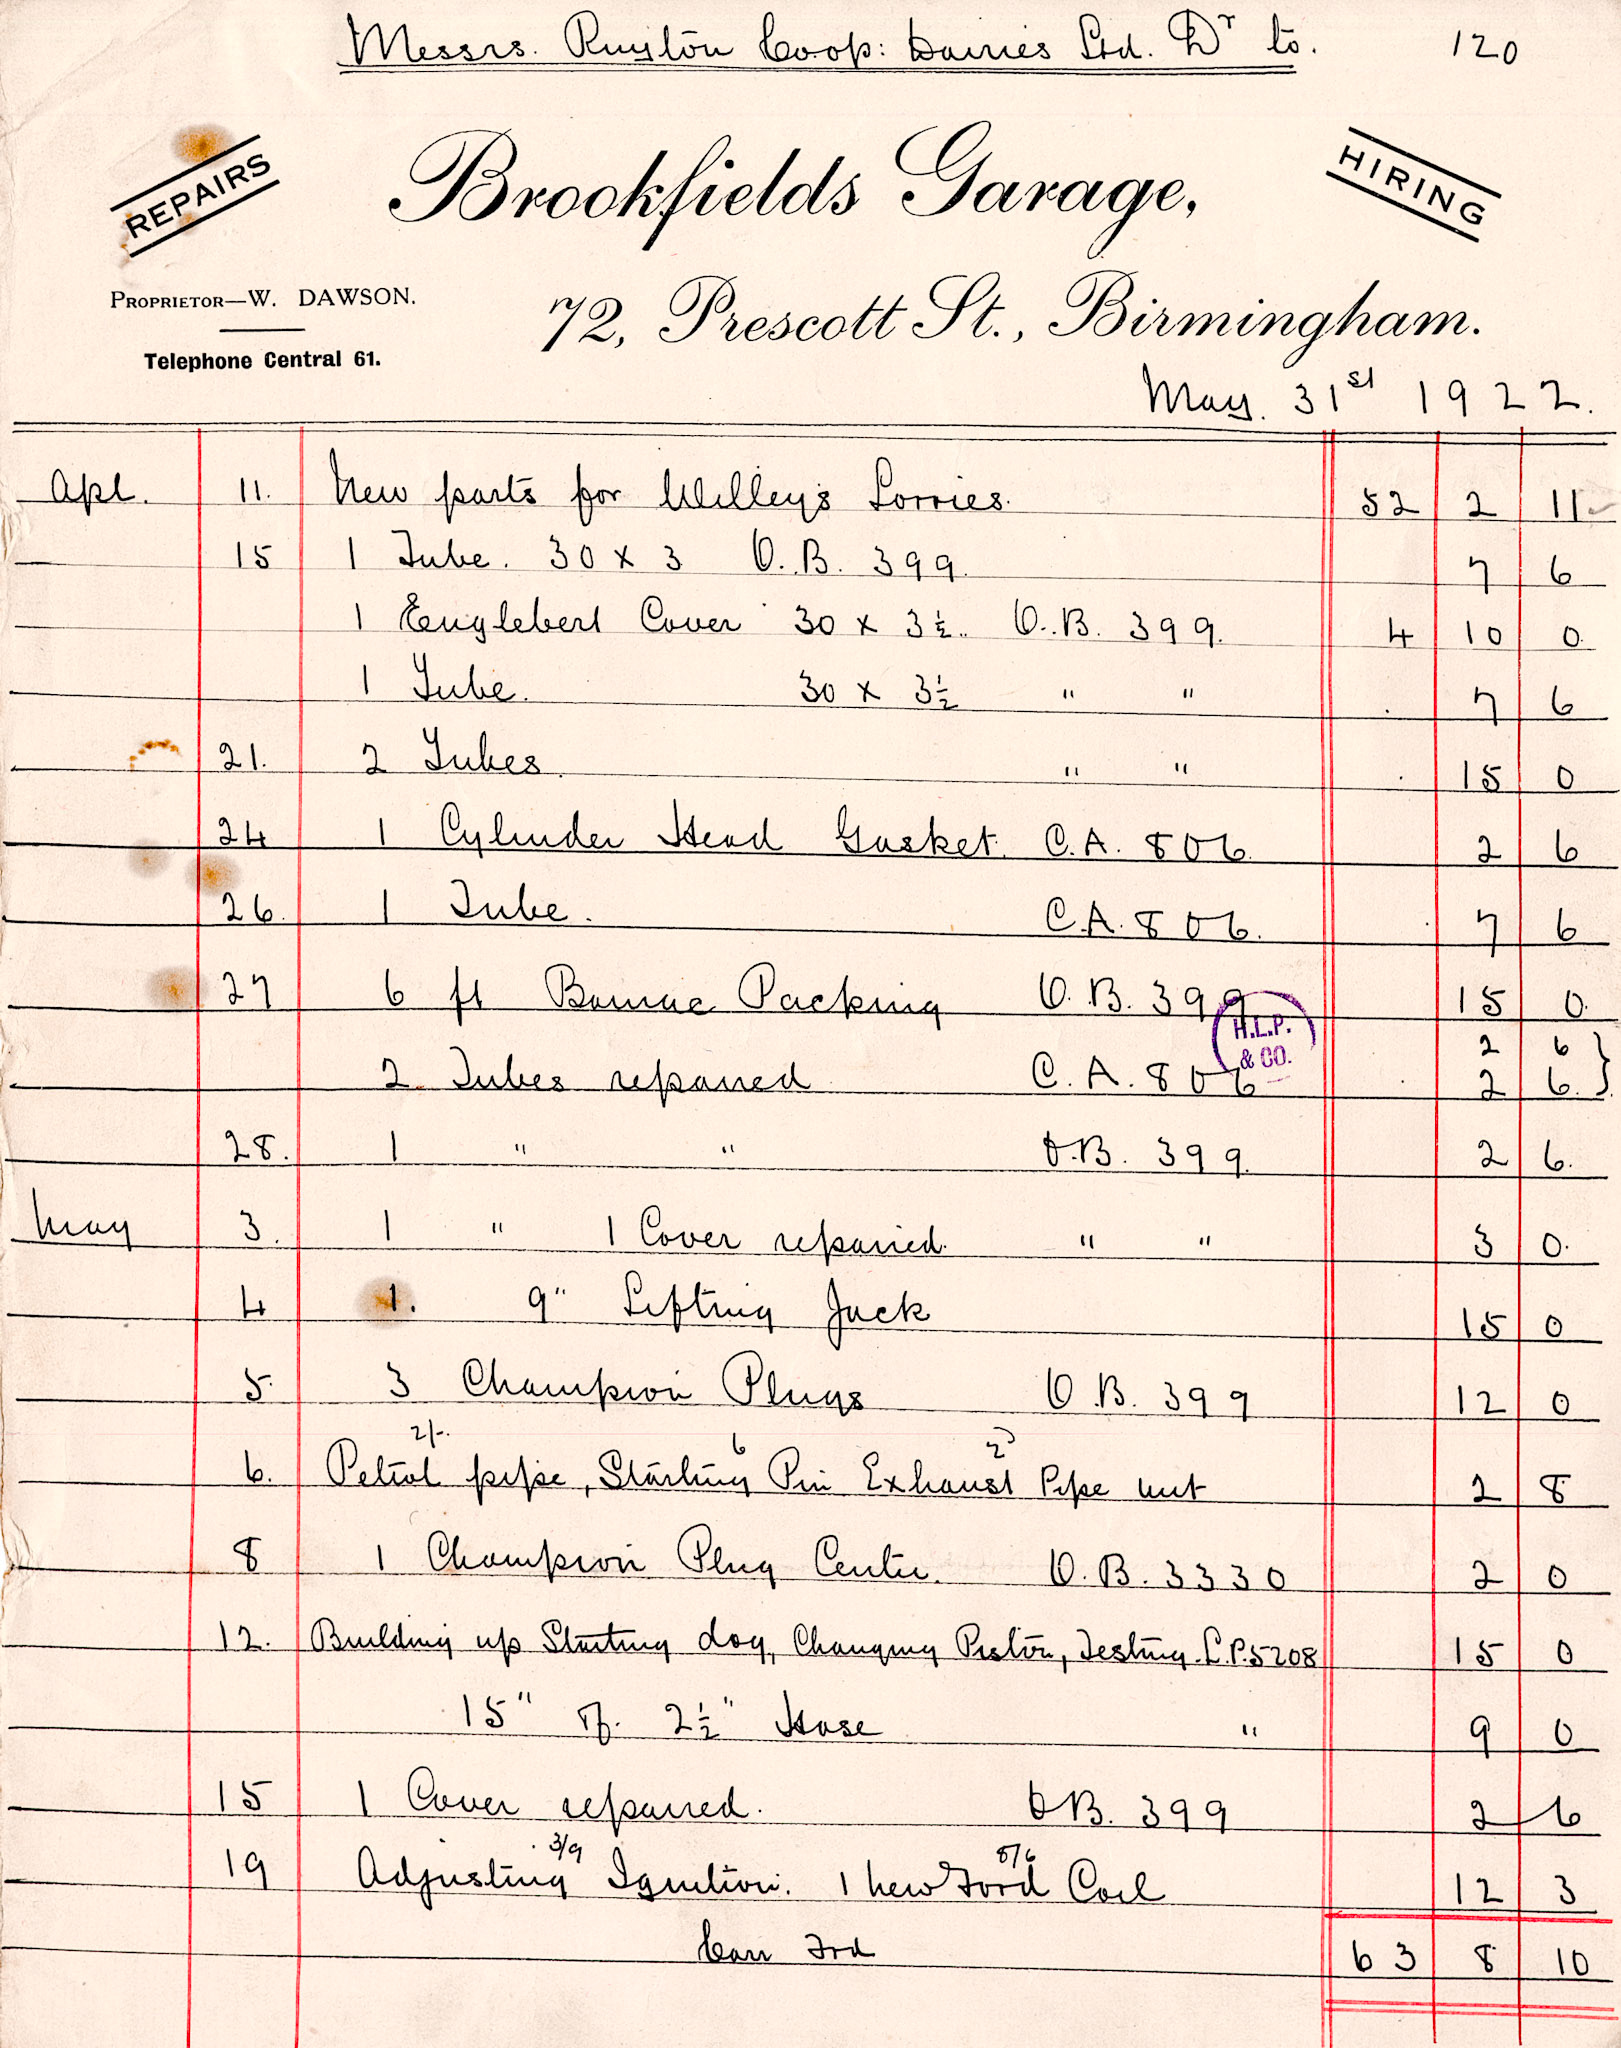 Messrs. Ruyton Coop: Dairies Ltd. Dr to. 120
REPAIRS
Brookfields Garage,
HIRING
PROPRIETOR—W. DAWSON.
72, Prescott St., Birmingham.
Telephone Central 61.
May. 31st 1922.
Apl. 11. New parts for Willey's Lorries. 52 2 11
15 1 Tube. 30 x 3 O.B. 399. 7 6
1 Englebert Cover 30 x 3½. O.B. 399. 4 10 0
1 Tube. 30 x 3½ " " 7 6
21. 2 Tubes. " " 15 0
24 1 Cylinder Head Gasket. C.A. 806. 2 6
26. 1 Tube. C.A. 806. 7 6
27 6 ft Packing O.B. 399 15 0
2 6
2 Tubes repaired C.A. 806 2 6
H.L.P. & CO.
28. 1 " " O.B. 399. 2 6.
May 3. 1 " 1 Cover repaired. " " 3 0.
4 1. 9" Lifting Jack 15 0
5. 3 Champion Plugs O.B. 399 12 0
2/-. 6 2
6. Petrol pipe, Starting Pin Exhaust Pipe nut 2 8
8 1 Champion Plug Centre. O.B. 3330 2 0
12. Building up Starting dog, Changing Piston, Testing. L.P. 5208 15 0
15" of 2½" Hose " 9 0
15 1 Cover repaired. O.B. 399 2 6
3/9 8/6
19 Adjusting Ignition. 1 New Ford Coil 12 3
Carr Frd 63 8 10